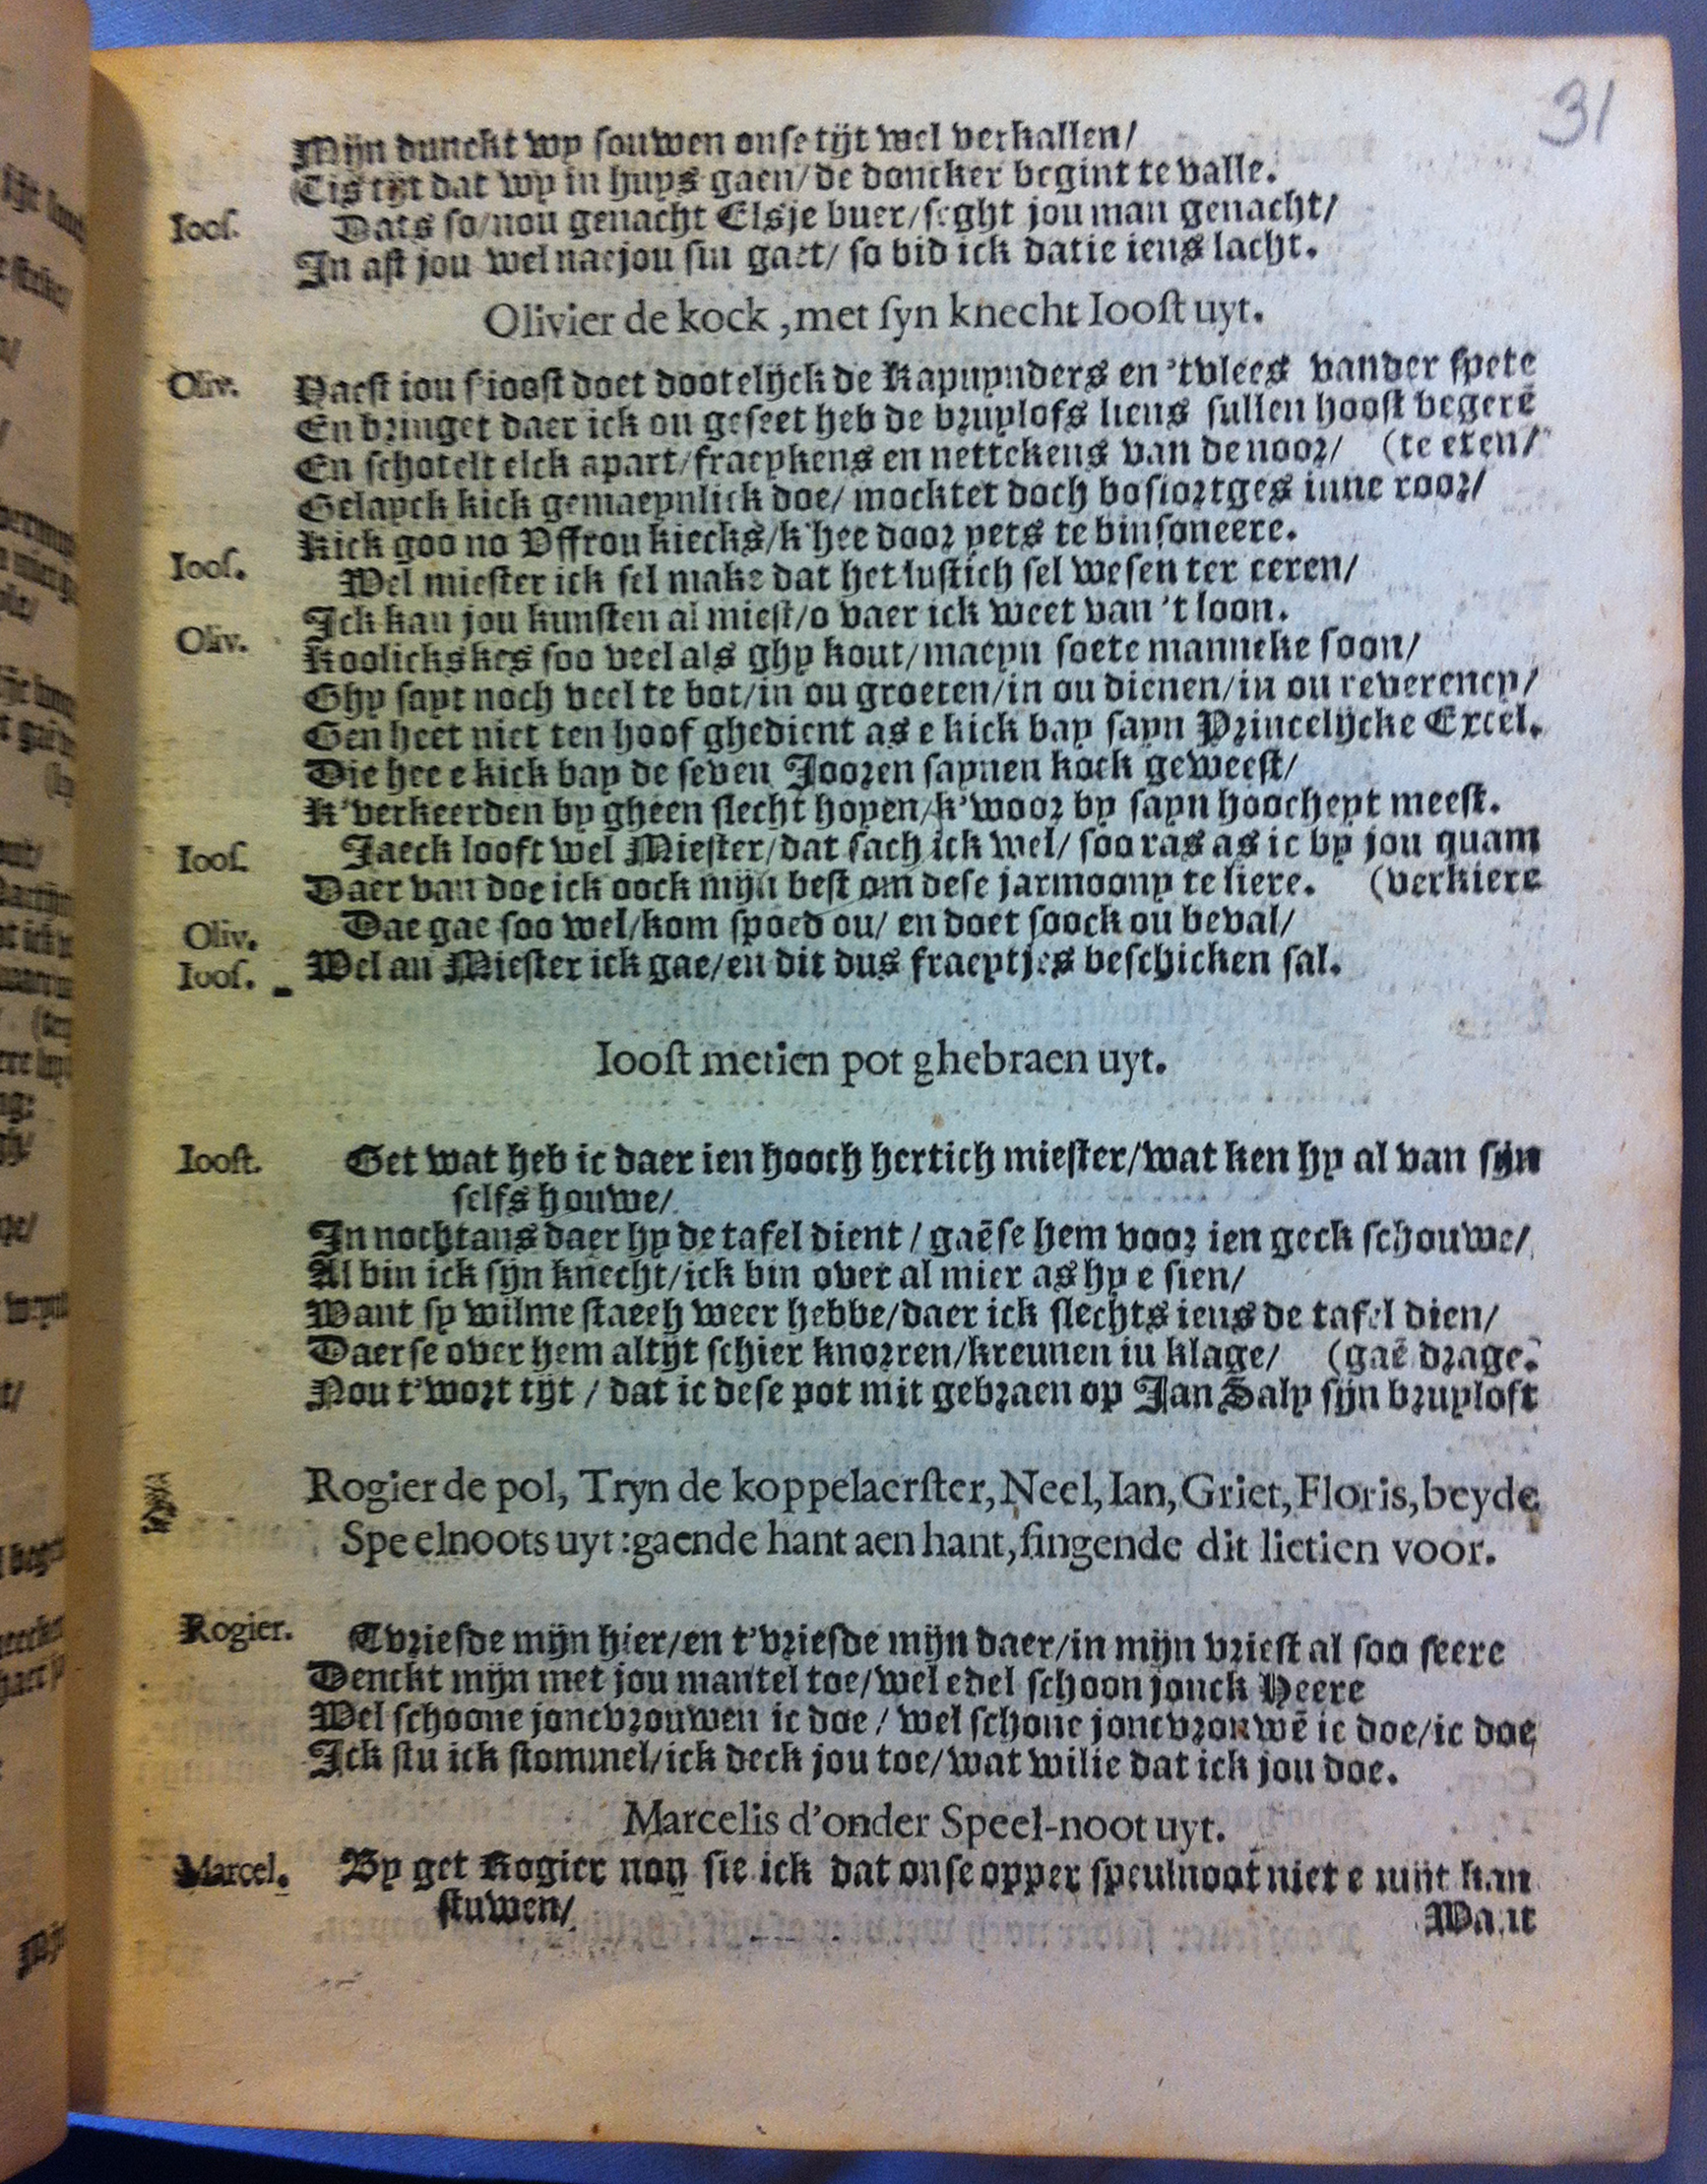 31
Mijn dunckt wy souwen onse tijt wel verkallen/
Tis tijt dat wy in huys gaen/de doncker begint te valle.
Ioos. Dats so/nou genacht Elsje buer/seght jou man genacht/
In ast jou wel nae jou sin gaet/ so bid ick datje iens lacht.
Olivier de kock, met syn knecht Ioost uyt.
Oliv. Haest iou s'ioost doet dootelijck de Kapuynders en 'tvlees vander spetē
En bringet daer ick ou geseet heb de bruylofs liens sullen hoost begerē
En schotelt elck apart/fraeykens en nettekens van de noor/ (te eten/
Gelayck kick gemaeynlick doe/ mocktet doch bosiortges inne roor/
Kick goo no Yffrou kiecks/k'hee door yets te binsoneere.
Ioos. Wel miester ick sel make dat het lustich sel wesen ter eeren/
Ick kan jou kunsten al miest/o vaer ick weet van 't loon.
Oliv. Koolickskes soo veel als ghy kout/maeyn soete manneke soon/
Ghy sayt noch veel te bot/in ou groeten/in ou dienen/in ou reverency/
Gen heet niet ten hoof ghedient as e kick bay sayn Princelijcke Excel.
Die hee e kick bay de seven Jooren saynen kock geweest/
K'verkeerden by gheen slecht hopen/k'woor by sayn hoocheyt meest.
Ioos. Jaeck looft wel Miester/dat sach ick wel/ soo ras as ic by jou quam
Daer van doe ick oock mijn best om dese jarmoony te liere. (verkiere
Oliv. Dae gae soo wel/kom spoed ou/ en doet soock ou beval/
Ioos. Wel an Miester ick gae/en dit dus fraeytjes beschicken sal.
Ioost metien pot ghebraen uyt.
Ioost. Get wat heb ic daer ien hooch hertich miester/wat ken hy al van sijn
selfs houwe/
In nochtans daer hy de tafel dient / gaēse hem voor ien geck schouwe/
Al bin ick sijn knecht/ick bin over al mier as hy e sien/
Want sy wilme staech weer hebbe/daer ick slechts iens de tafel dien/
Daer se over hem altijt schier knorren/kreunen in klage/ (gaē drage.
Nou t'wort tijt / dat ic dese pot mit gebraen op Jan Saly sijn bruyloft
Rogier de pol, Tryn de koppelaerster, Neel, Ian, Griet, Floris, beyde
Speelnoots uyt: gaende hant aen hant, singende dit lietien voor.
Rogier. Tvriesde mijn hier/en t'vriesde mijn daer/in mijn vriest al soo seere
Denckt mijn met jou mantel toe/wel edel schoon jonck Heere
Wel schoone joncvrouwen ic doe / wel schone joncvrouwē ic doe/ic doe
Ick stu ick stommel/ick deck jou toe/wat wilje dat ick jou doe.
Marcelis d'onder Speel-noot uyt.
Marcel. By get Rogier nou sie ick dat onse opper speulnoot niet e mijt kan
stuwen/
Want